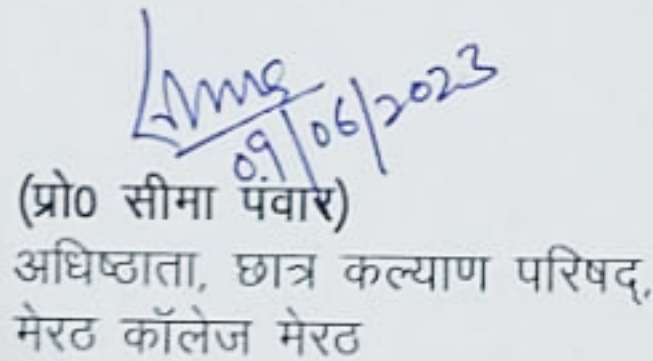 09/06/2023
(प्रो0 सीमा पंवार)
अधिष्ठाता, छात्र कल्याण परिषद्,
मेरठ कॉलेज मेरठ